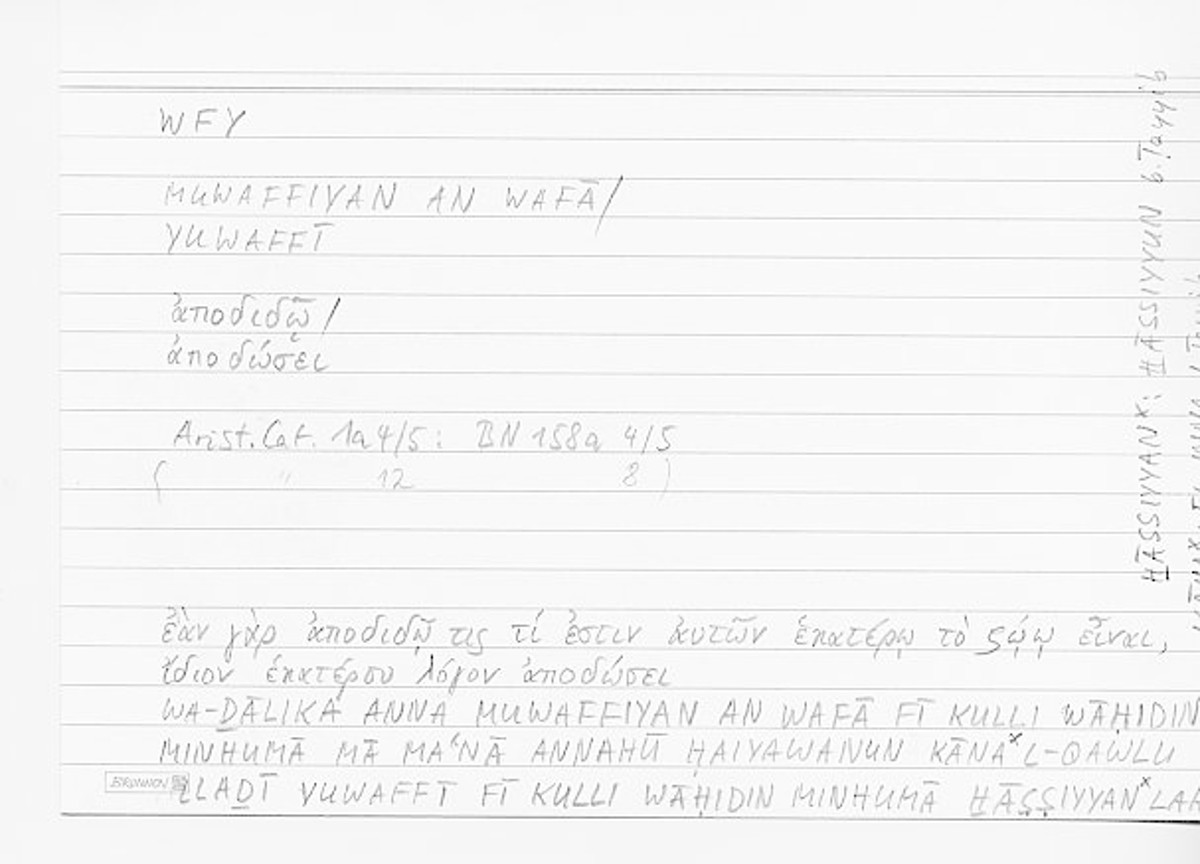 WFY
MUWAFFIYAN AN WAFĀ/
YUWAFFĪ
ἀποδιδῷ/
ἀποδώσει
Arist. Cat. 1a 4/5: BN 158a 4/5
( " 12 8 )
ἐὰν γὰρ ἀποδιδῷ τις τί ἐστιν αὐτῶν ἑκατέρῳ τὸ ζῴῳ εἶναι,
ἴδιον ἑκατέρου λόγον ἀποδώσει
WA-ḎĀLIKA ANNA MUWAFFIYAN AN WAFĀ FĪ KULLI WĀḤIDIN
MINHUMĀ MĀ MA'NĀ ANNAHŪ ḤAIYAWANUN KĀNAˣ L-QAWLU
LLAḎĪ YUWAFFĪ FĪ KULLI WĀḤIDIN MINHUMĀ ḪĀṢṢIYYANˣ LAH
BRUNNEN
ḪĀṢṢIYYANˣ: ḪĀṢṢIYYUN b. Ṭayyib